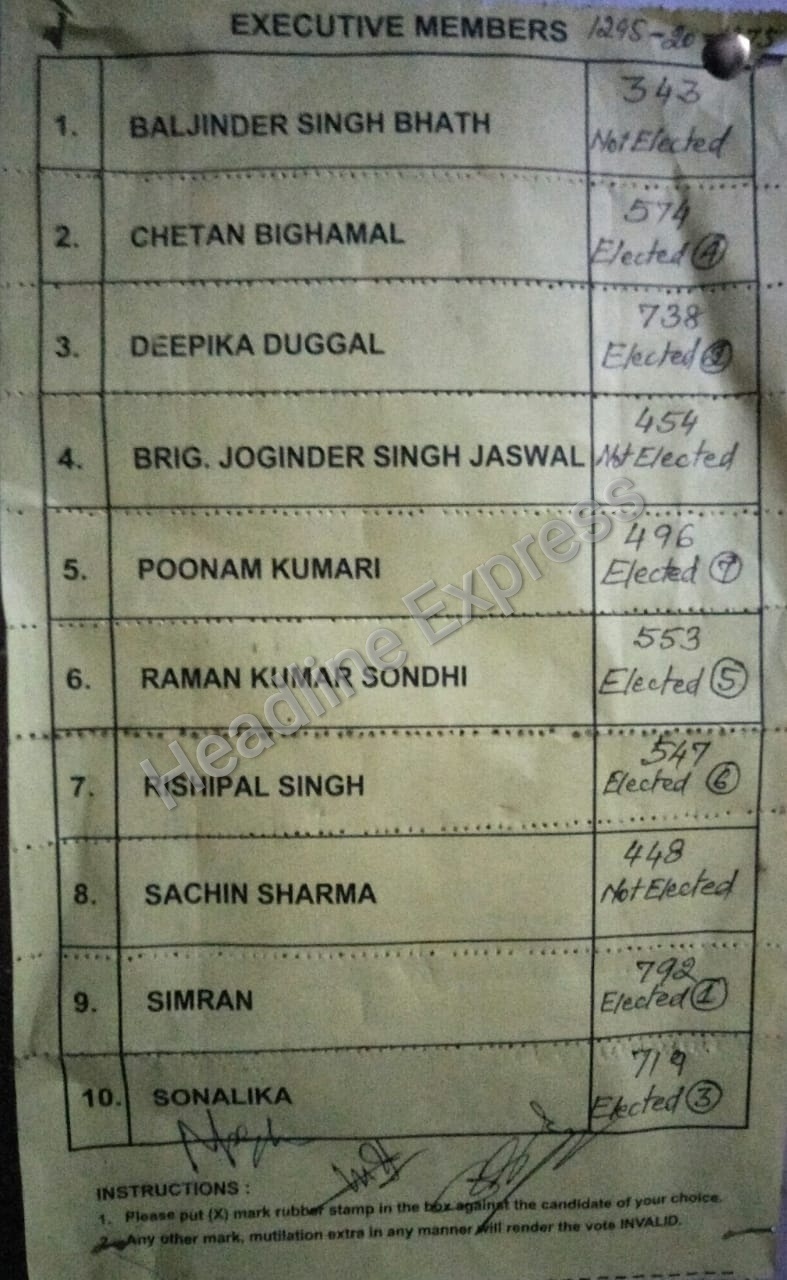 EXECUTIVE MEMBERS 1295-20-
1. BALJINDER SINGH BHATH 343
Not Elected
2. CHETAN BIGHAMAL 574
Elected 4
3. DEEPIKA DUGGAL 738
Elected 2
4. BRIG. JOGINDER SINGH JASWAL 454
Not Elected
5. POONAM KUMARI 496
Elected 7
6. RAMAN KUMAR SONDHI 553
Elected 5
7. RISHIPAL SINGH 547
Elected 6
8. SACHIN SHARMA 448
Not Elected
9. SIMRAN 792
Elected 1
10. SONALIKA 719
Elected 3
Headline Express
INSTRUCTIONS :
1. Please put (X) mark rubber stamp in the box against the candidate of your choice.
2. Any other mark, mutilation extra in any manner will render the vote INVALID.